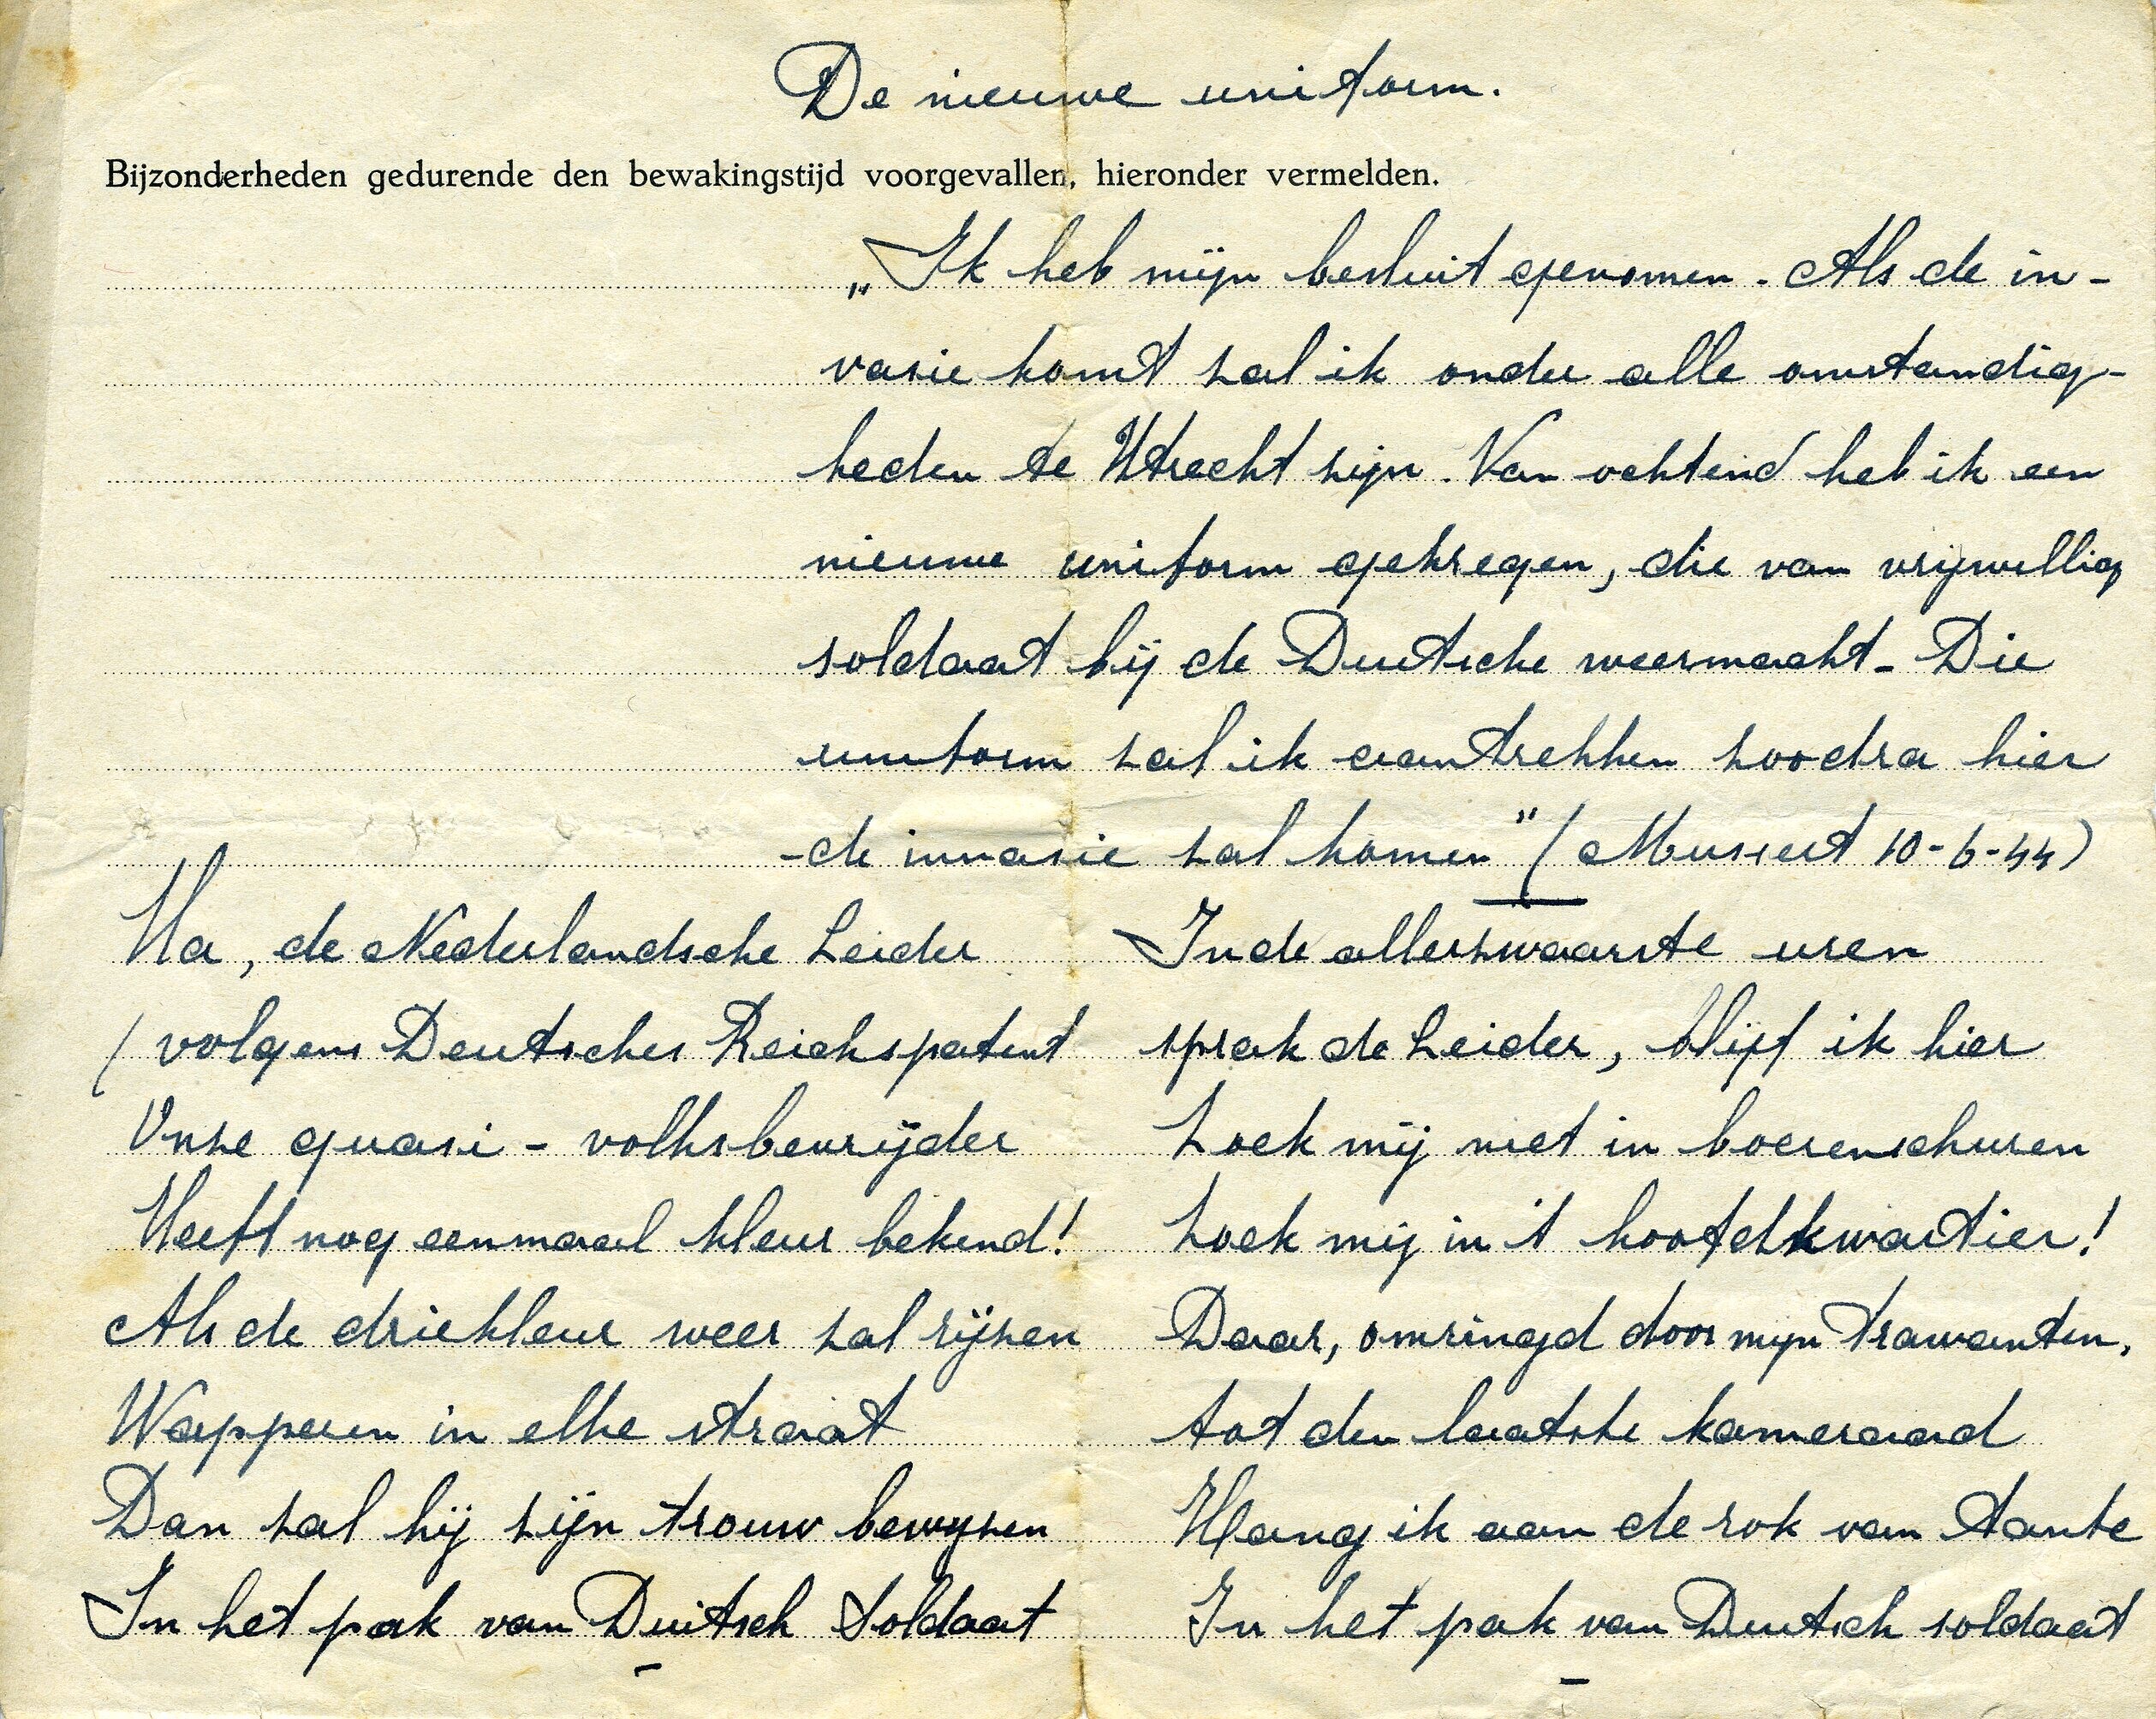 De nieuwe uniform.
Bijzonderheden gedurende den bewakingstijd voorgevallen, hieronder vermelden.
„Ik heb mijn besluit genomen. Als de in-
vasie komt zal ik onder alle omstandig-
heden te Utrecht zijn. Van ochtend heb ik een
nieuwe uniform gekregen, die van vrijwillig
soldaat bij de Duitsche weermacht. Die
uniform zal ik aantrekken zoodra hier
de invasie zal komen" (Mussert 10-6-44)
Ha, de Nederlandsche Leider
(volgens Deutsches Reichspatent
Onze quasi-volksbevrijder
Heeft nog eenmaal kleur bekend!
Als de driekleur weer zal rijzen
Wapperen in elke straat
Dan zal hij zijn trouw bewijzen
In het pak van Duitsch Soldaat
In de allerzwaarste uren
sprak de Leider, blijf ik hier
Zoek mij niet in boerenschuren
Zoek mij in 't hoofdkwartier!
Daar, omringd door mijn trawanten,
tot den laatste kameraad
Hang ik aan de rok van tante
In het pak van Duitsch soldaat